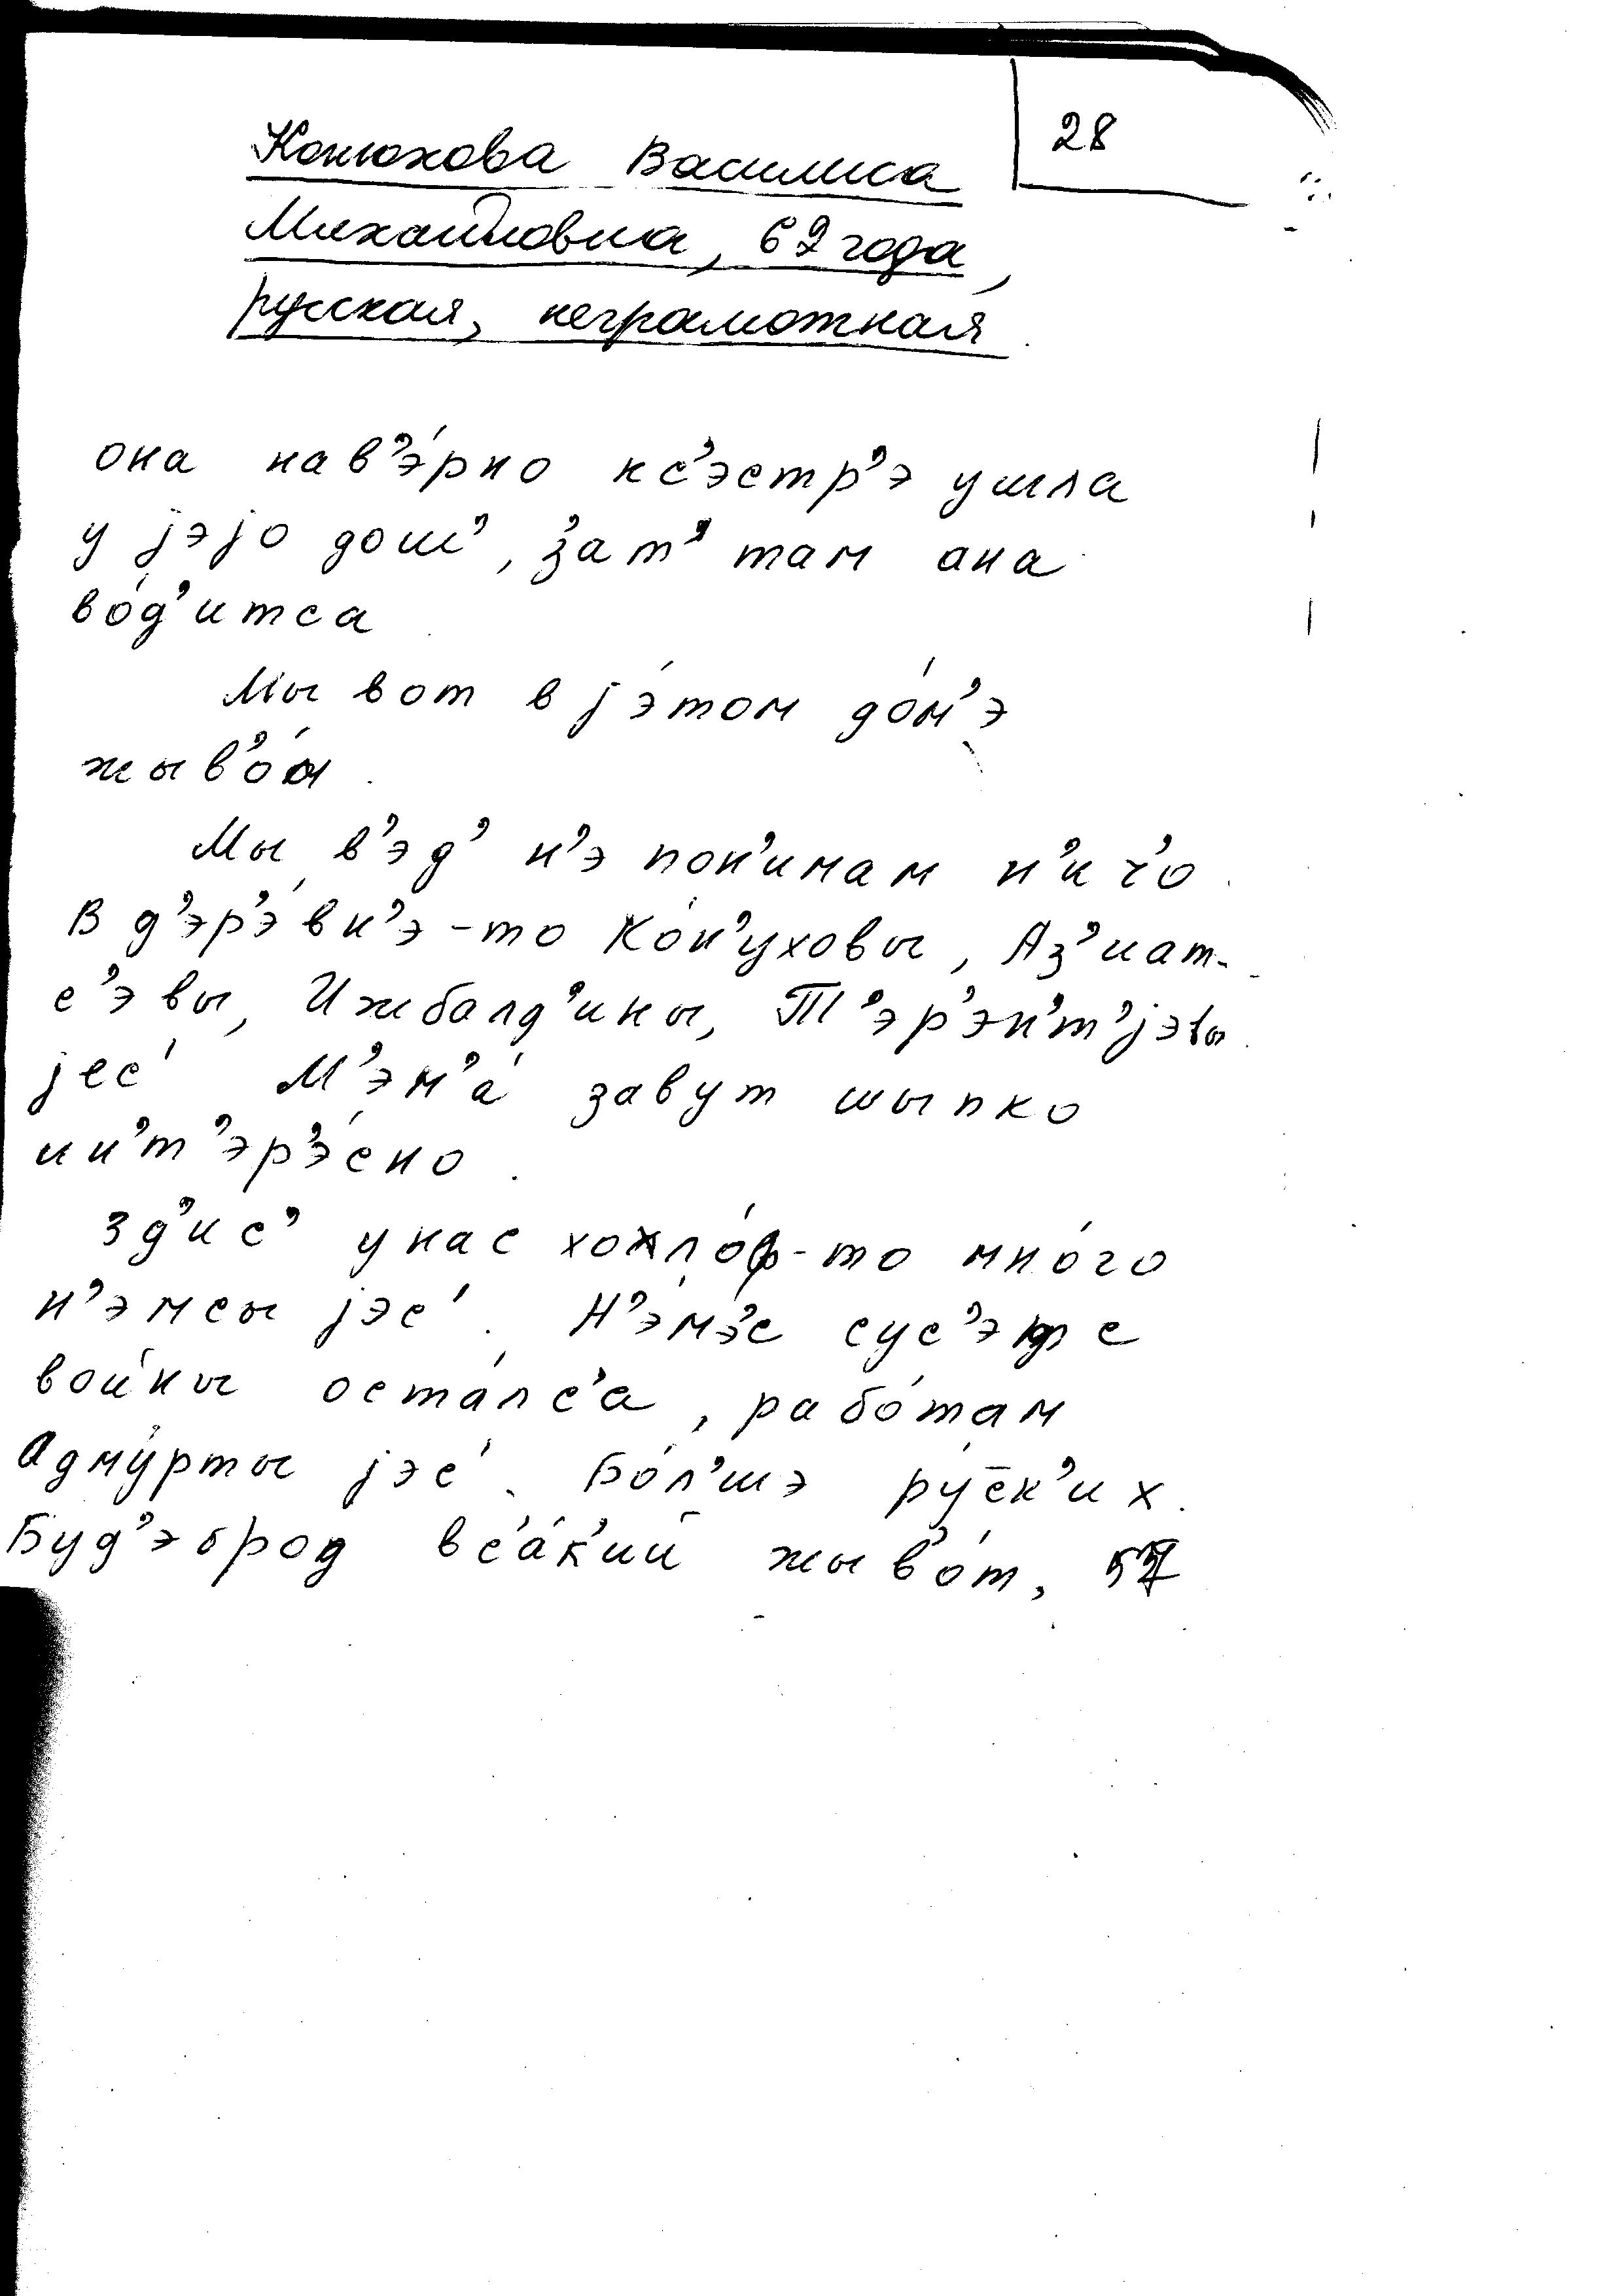 28
Конюхова Василиса
Михайловна, 62 года,
русская, неграмотная.
она нав'э́рно кс'эстр'э ушла
у jэjо дош', з'ат' там ана
во́д'итса
Мы вот в jэ́том до́м'э
жыв'о́м.
Мы в'эд' н'э пон'имам н'ич'о.
В д'эр'э́вн'э-то Ко́н'уховы, Аз'иат-
с'эвы, Ижболд'ины, Т'эр'эн'т'jэвы
jес' М'эн'а́ завут шыпко
ин'т'эр'э́сно.
Зд'ис' у нас хохло́ф-то мно́го
н'эмсы jэс'. Н'э́м'эс сус'эт с
войны оста́лс'а, рабо́там
Адму́рты jэс'. Бо́л'шэ ру́с̄к'их.
Буд'эброд вс'а́к'ий жыв'о́т,